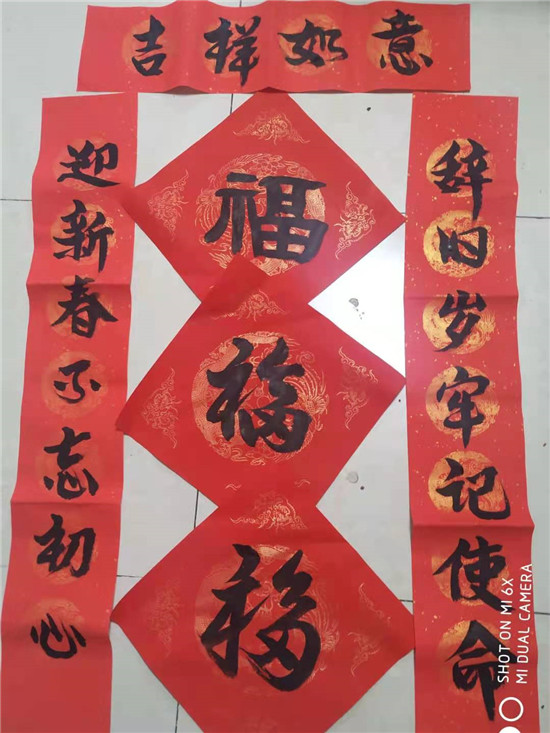 吉祥如意
辞旧岁牢记使命
迎新春不忘初心
福
福
福
SHOT ON MI 6X
MI DUAL CAMERA